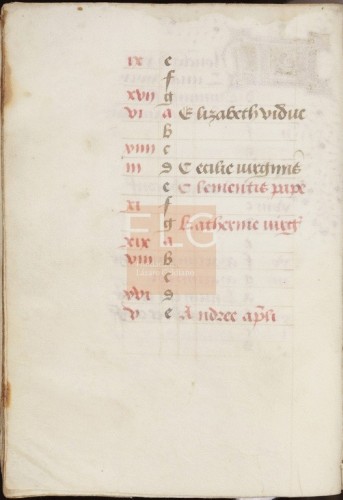 ix e
f
xvii g
vi a Elizabeth vidue
b
xiiii c
iii d Cecilie virginis
e Clementis pape
xi f
g Katherine virg
xix a
viii b
c
xvi d
v e Andree apli